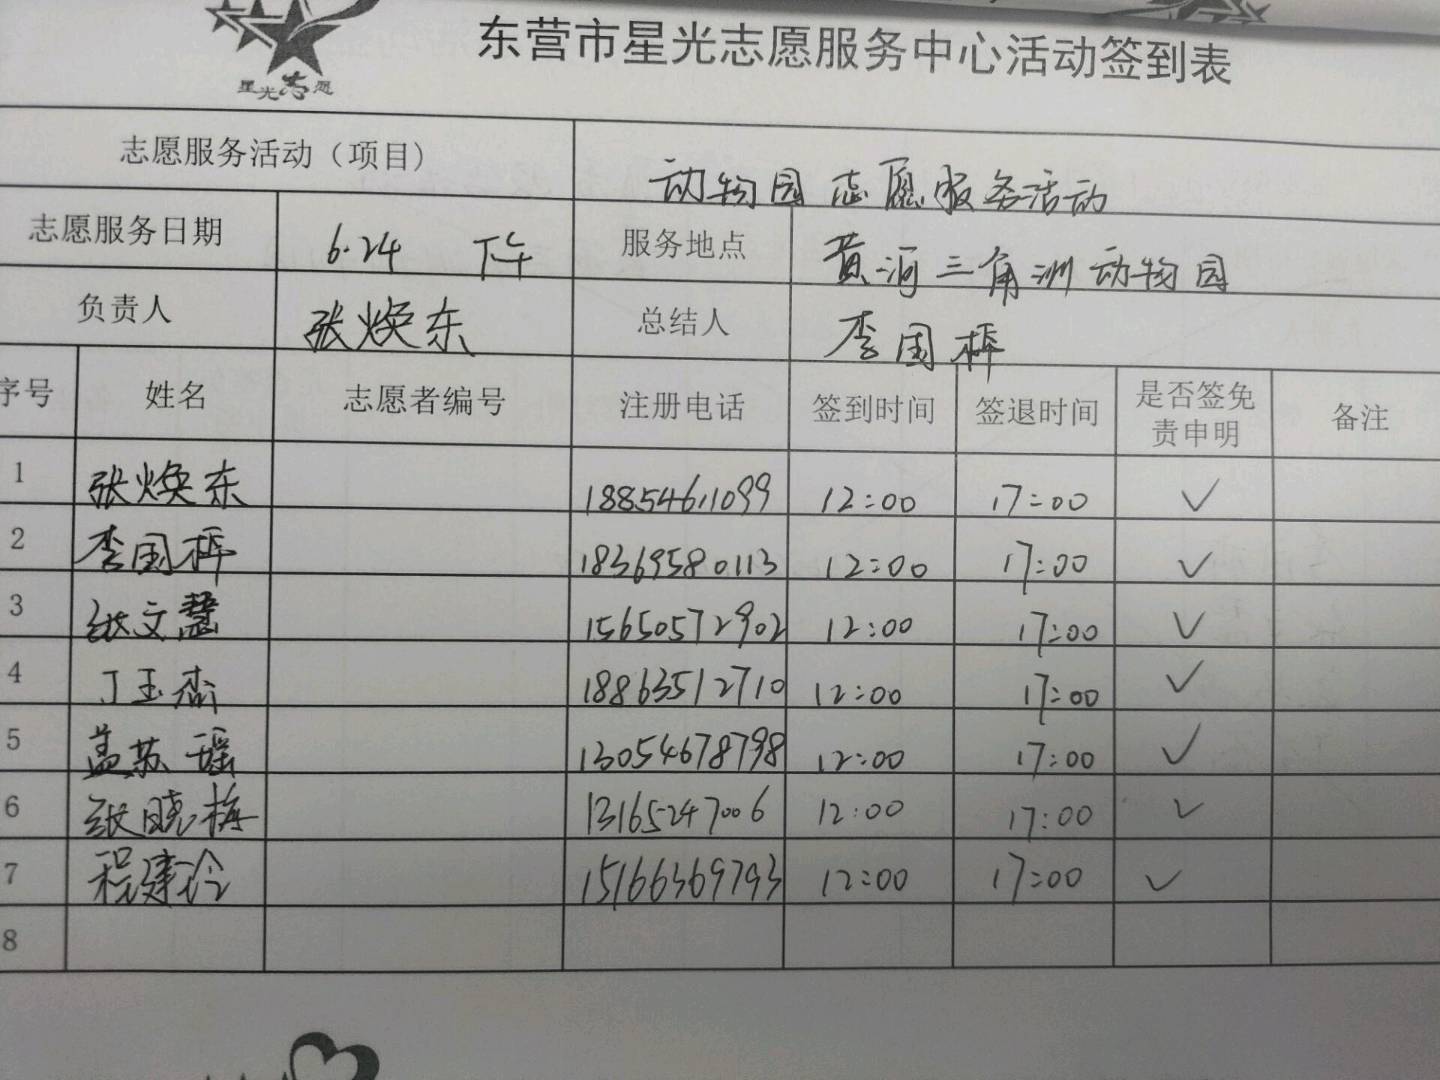 东营市星光志愿服务中心活动签到表
星光志愿
志愿服务活动（项目） 动物园志愿服务活动
志愿服务日期 6.24 下午 服务地点 黄河三角洲动物园
负责人 张焕东 总结人 李国梓
序号 姓名 志愿者编号 注册电话 签到时间 签退时间 是否签免责申明 备注
1 张焕东 18854611099 12:00 17:00 ✓
2 李国梓 18369580113 12:00 17:00 ✓
3 张文慧 15650572902 12:00 17:00 ✓
4 丁玉杰 18863512710 12:00 17:00 ✓
5 盖苏瑶 13054678798 12:00 17:00 ✓
6 张晓梅 13165247006 12:00 17:00 ✓
7 程建玲 15166369793 12:00 17:00 ✓
8